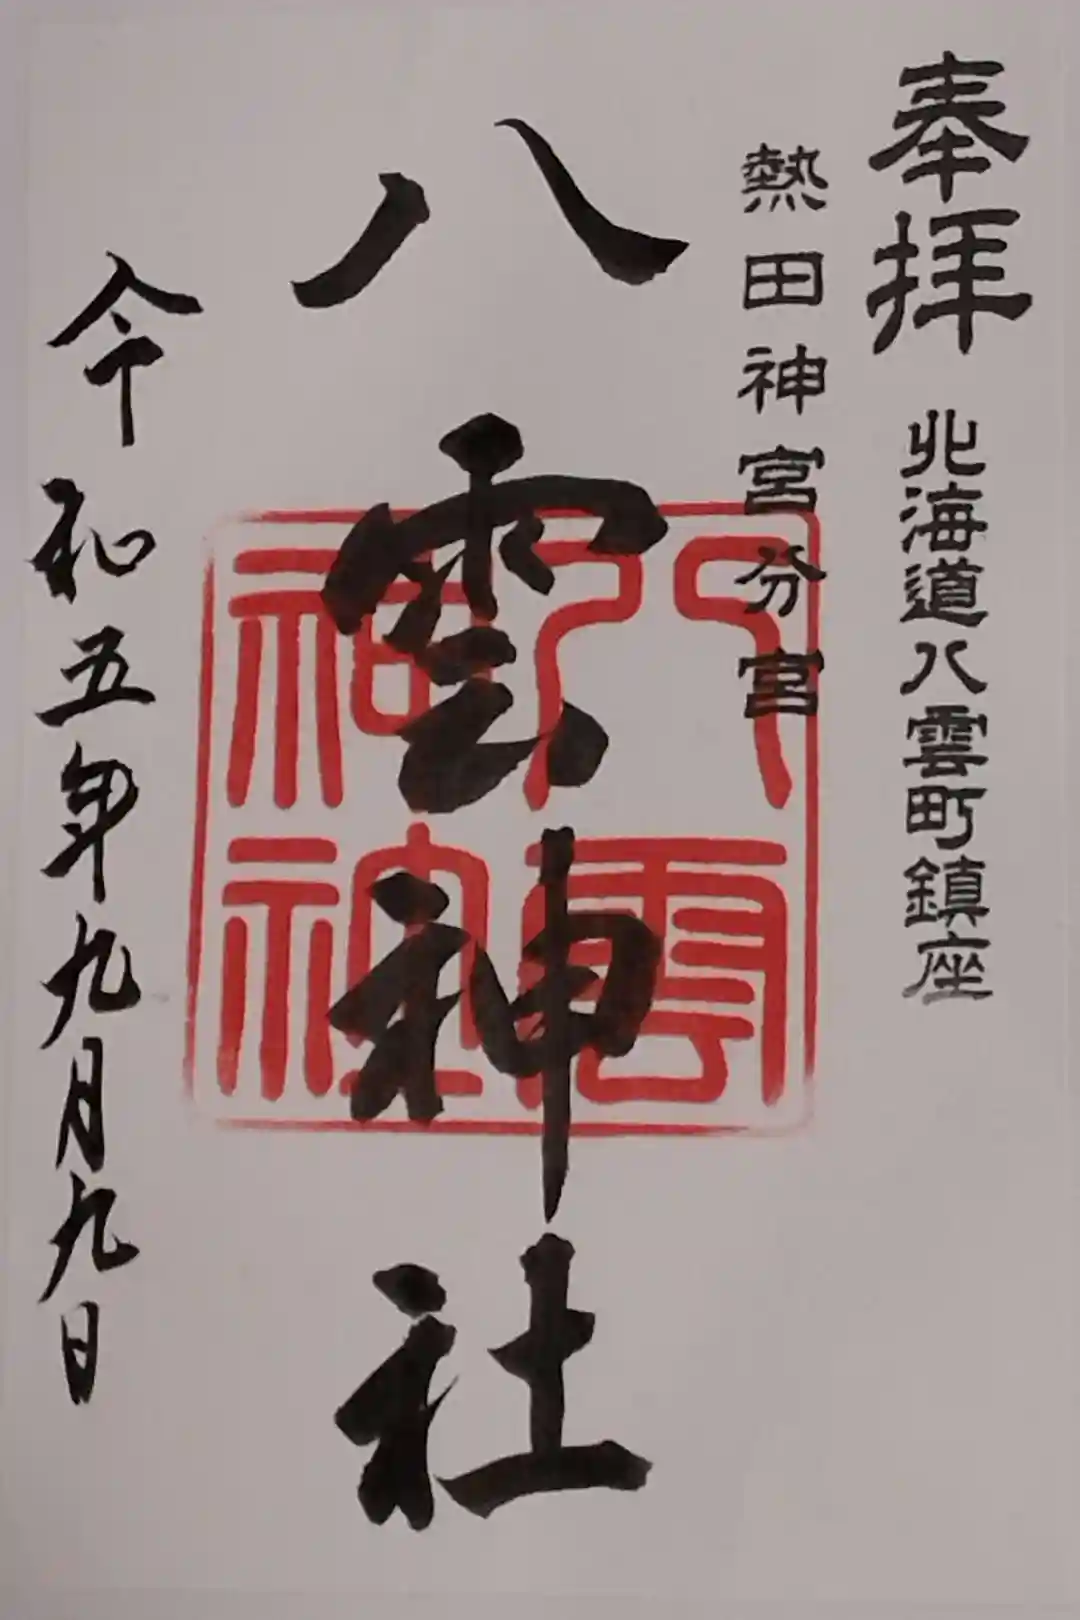 奉拝 北海道八雲町鎮座
熱田神宮分宮
八雲神社
八雲
神社
令和五年九月九日